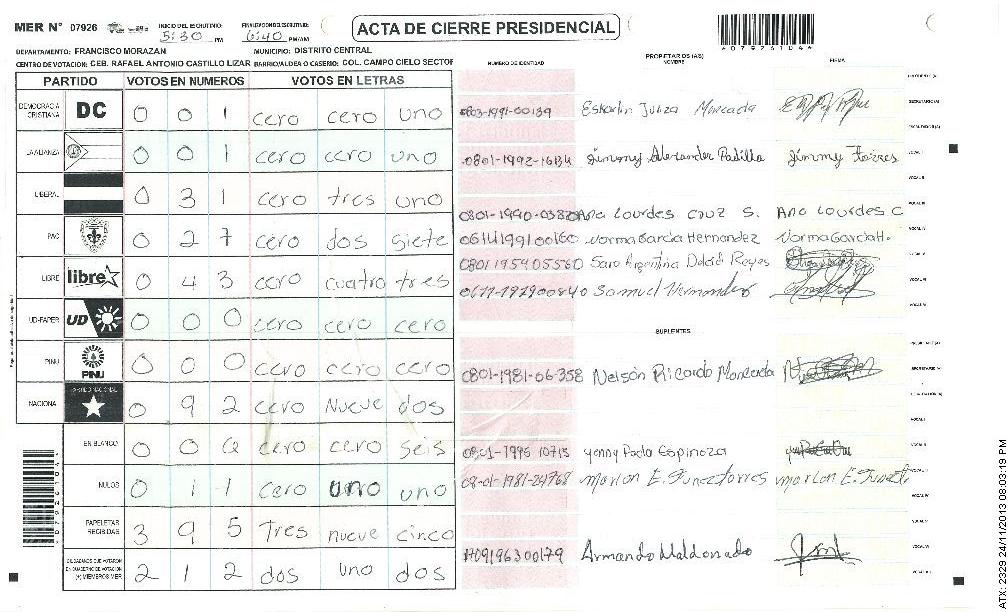 ACTA DE CIERRE PRESIDENCIAL
MER Nº 07926 INICIO DEL ESCRUTINIO: 5:30 PM FINALIZACION DEL ESCRUTINIO: 6:40 PM/AM
DEPARTAMENTO: FRANCISCO MORAZAN MUNICIPIO: DISTRITO CENTRAL
CENTRO DE VOTACION: CEB. RAFAEL ANTONIO CASTILLO LIZAR BARRIO/ALDEA O CASERIO: COL. CAMPO CIELO SECTOR
PARTIDO VOTOS EN NUMEROS VOTOS EN LETRAS
DEMOCRACIA CRISTIANA DC 0 0 1 cero cero uno
LA ALIANZA 0 0 1 cero cero uno
LIBERAL 0 3 1 cero tres uno
PAC 0 2 7 cero dos siete
LIBRE libre 0 4 3 cero cuatro tres
UD-FAPER UD 0 0 0 cero cero cero
PINU PINU 0 0 0 cero cero cero
NACIONA 0 9 2 cero Nueve dos
EN BLANCO 0 0 6 cero cero seis
NULOS 0 1 1 cero uno uno
PAPELETAS RECIBIDAS 3 9 5 Tres nueve cinco
CIUDADANOS QUE VOTARON EN CUADERNO DE VOTACION (+) MIEMBROS MER 2 1 2 dos uno dos
*079261044*
PROPIETARIOS (AS)
NUMERO DE IDENTIDAD NOMBRE FIRMA
0803-1991-00139 Moncada
0801-1992-16134 Jimmy Alexander Padilla Jimmy Torres
Ana Lourdes Cruz S. Ana Lourdes C
0614199100160 Norma Garcia Hernandez Norma Garcia H.
0801195405560 Sara Argentina Reyes
Samuel Hernandez
SUPLENTES
0801-1981-06-358 Nelson Ricardo Moncada
0801-1995 10715 Yenny Paola Espinoza
08-01-1981-24768 Marlon E. Funez torres Marlon E. Funez t.
Armando Maldonado
ATX: 2329 24/11/2013 08:03:19 PM